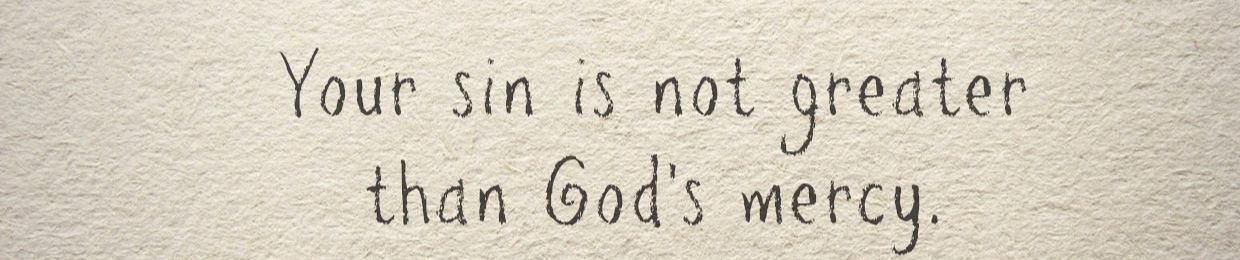 Your sin is not greater
than God's mercy.